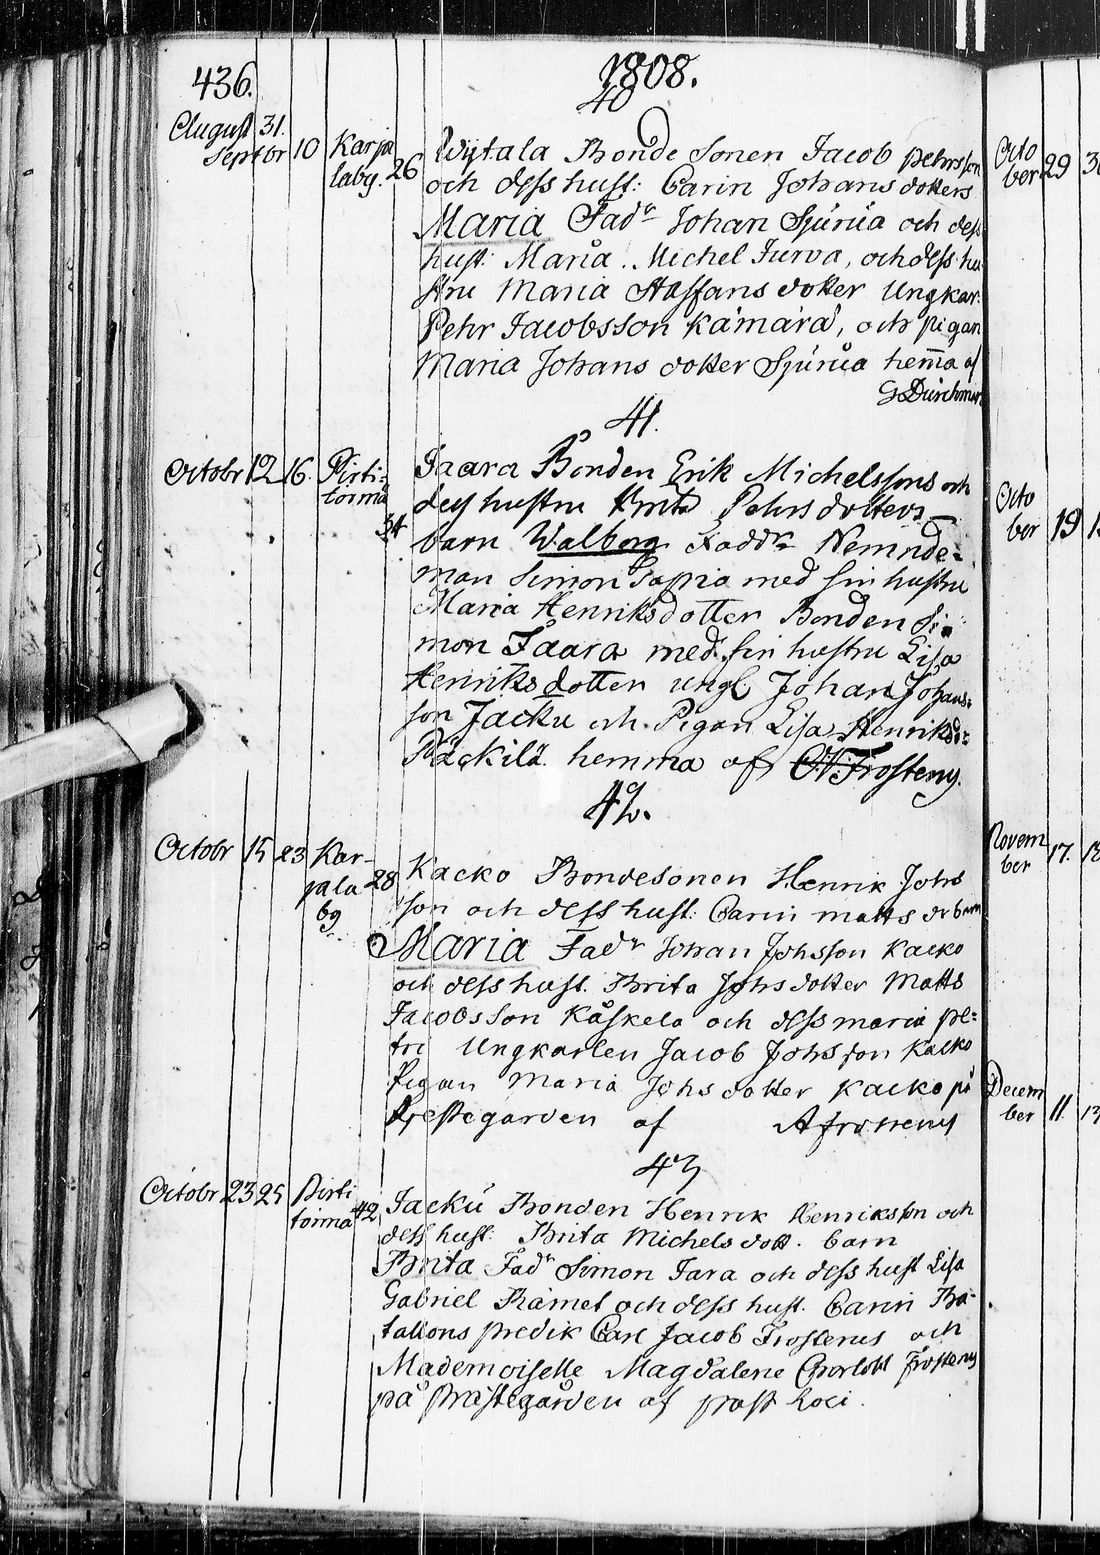 436.
1808.
40
August 31.
Septbr 10 Karja
laby. 26
Wijtala Bonde Sonen Jacob Pehrsson
och dess hust: Carin Johans dotters
Maria Fadr Johan Sjurua och dess
hust: Maria. Michel Turva, och dess hu
stru Maria Staffans dotter Ungkar:
Pehr Jacobsson Kämärä, och pigan
Maria Johans dotter Sjurua hema af
41.
Octobr 12 16. Pirti-
toima
34
Jaara Bonden Erik Michelssons och
dess hustru Brita Pehrs dotters
barn Walborg Faddr Nemnde-
man Simon Sapria med sin hustru
Maria Henriksdotter Bonden Si-
mon Jaara med sin hustru Lisa
Henriksdotter ungl. Johan Johans-
son Jacku och Pigan Lisa Henriksd:
Räckilä hemma af Frosteny.
42.
Octobr 15 23 Kar-
jala 28
by
Kacko Bondesonen Henrik Johs
son och dess hust: Carin matts dr barn
Maria Fadr Johan Johsson Kacko
och dess hust. Brita Johs dotter Matts
Jacobsson Kåskela och dess maria pe-
tri Ungkarlen Jacob Johsson Kacko
Pigan Maria Johs dotter Kacko på
Prestegarden af A frosterus
43
Octobr 23 25 Pirti
toima 42
Jacku Bonden Henrik Henriksson och
dess hust: Brita Michels dott. barn
Brita Fadr Simon Jara och dess hust Lisa
Gabriel Rämet och dess hust. Carin Ba-
tallions predik Carl Jacob Frosterus och
Mademoiselle Magdalene Charlott Frosterus
på Prästegården af past Loci.
Octo
ber 29
Octo
ber 19
Novem
ber 17.
Decem
ber 11